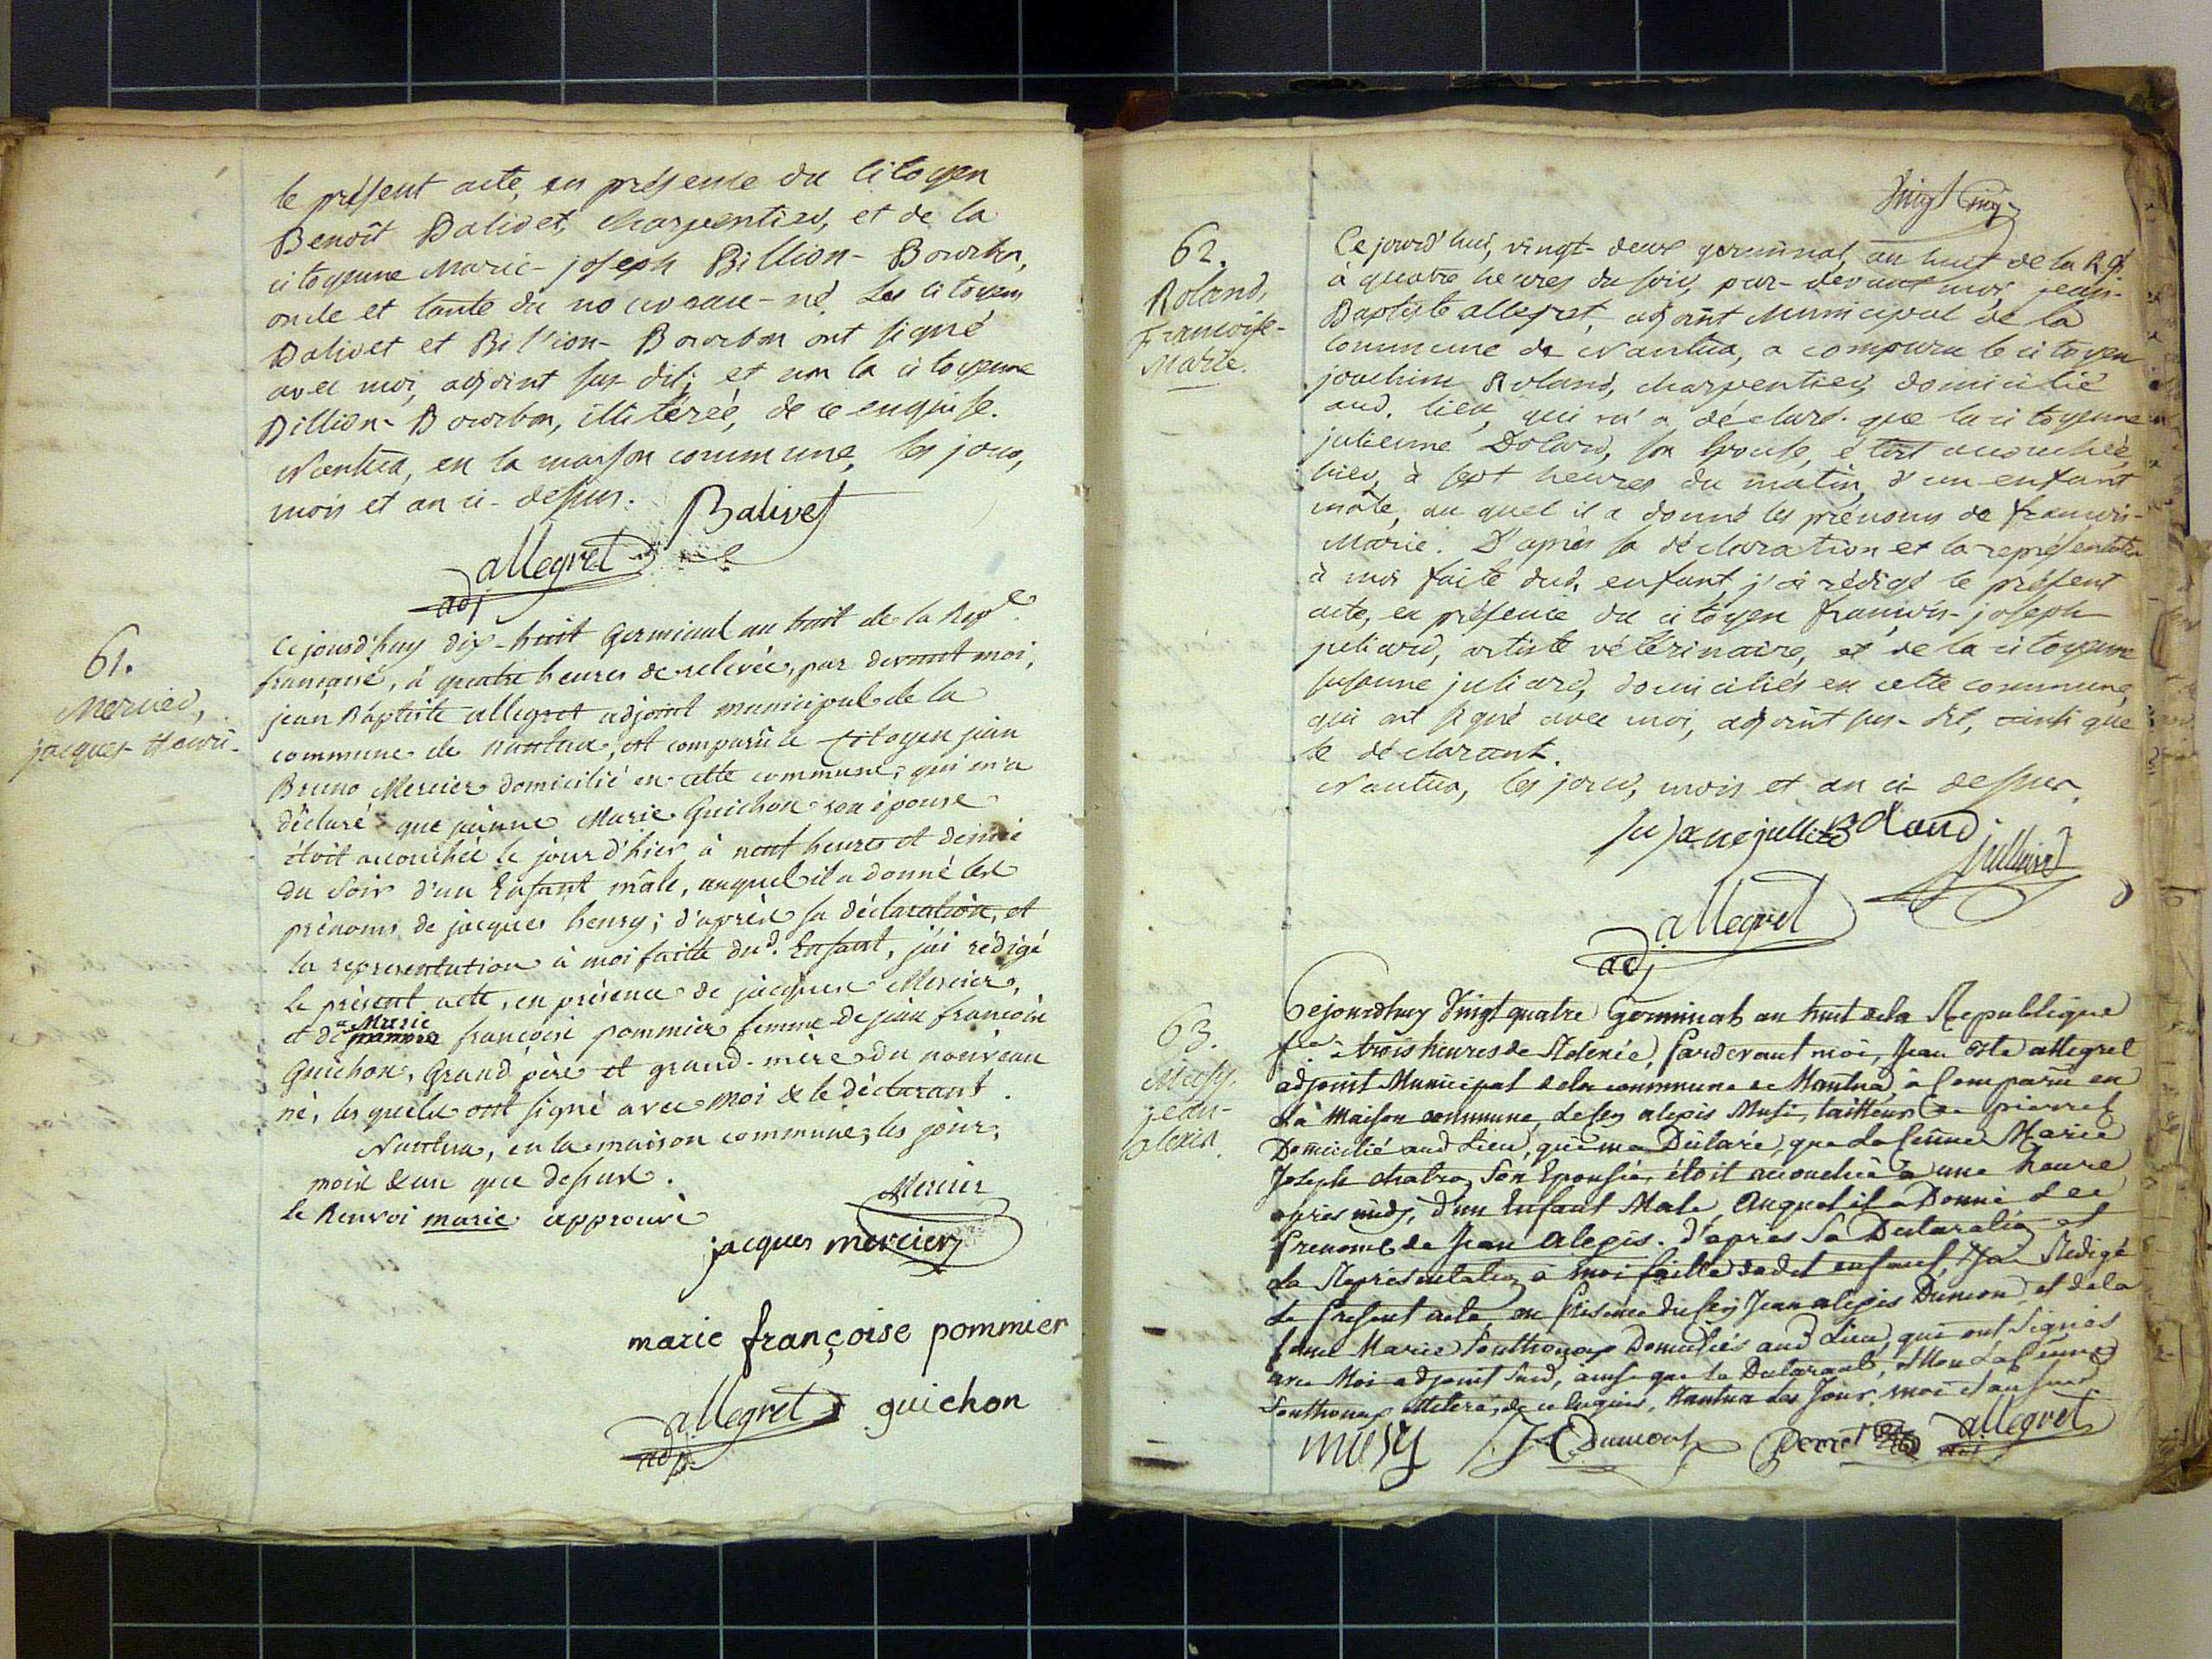 le présent acte, en présence du citoyen
Benoît Balivet, charpentier, et de la
citoyenne Marie-joseph Billion-Bourbon,
oncle et tante du nouveau-né. Les citoyens
Balivet et Billion-Bourbon ont signé
avec moi, adjoint sus-dit; et non la citoyenne
Billion-Bourbon, illitérée, de ce enquise.
Nantua, en la maison commune, les jour,
mois et an ci-dessus.
Balivet
allegret
adj
61.
Mercier,
jacques-Henri.
Ce jourd'huy dix-huit Germinal an huit de la Rep.e
française, à quatre heures de relevée, par devant moi,
jean Baptiste allegret adjoint municipal de la
commune de nantua, est comparu le citoyen jean
Bruno Mercier domicilié en cette commune, qui m'a
déclaré que jeanne Marie Guichon son épouse
étoit accouchée le jour d'hier à neuf heures et demie
du soir d'un Enfant mâle, auquel il a donné les
prénoms de jacques henry; d'après sa déclaration, et
la representation à moi faite dud. Enfant, j'ai rédigé
le présent acte, en présence de jacques Mercier,
et de Marie françoise pommier femme de jean françois
Guichon, Grand père et grand-mère du nouveau
né, lesquels ont signé avec moi & le déclarant.
Nantua, en la maison commune, les jour,
mois & an que dessus.
le Renvoi marie approuvé
Mercier
jacques mercier
marie françoise pommier
guichon
allegret
adj.
Vingt Cinq
62.
Roland,
Françoise-
Marie.
Ce jourd'hui, vingt-deux germinal, an huit de la Rép.
à quatre heures du soir, par-devant moi, jean-
Baptiste allegret, adjoint Municipal de la
commune de Nantua, a comparu le citoyen
joachim Roland, charpentier, domicilié
aud. lieu, qui m'a déclaré que la citoyenne
julienne Dolard, son Epouse, étoit accouchée,
hier, à sept heures du matin, d'un enfant
mâle, au quel il a donné les prénoms de françois-
Marie. D'après sa déclaration et la représentation
à moi faite dud. enfant, j'ai rédigé le présent
acte, en présence du citoyen françois-joseph
juliard, artiste vétérinaire, et de la citoyenne
susanne juliard, domiciliés en cette commune,
qui ont signé avec moi, adjoint sus-dit, ainsi que
le déclarant.
Nantua, les jour, mois et an ci-dessus.
allegret
adj
63.
Musy,
jean-
alexis.
Cejourdhuy Vingt quatre Germinal an huit de la Republique
trois heures de Relevée, Pardevant moi, Jean Bte allegret
adjoint Municipal de la commune de Nantua, à Comparu en
La Maison commune, Le Cen alexis Musi, tailleur de pierres
Domicilié aud Lieu, qui ma Déclaré, que La Cenne Marie
Joseph chatro, Son Epouse, étoit accouchée à une heure
après midy, d'un Enfant Male Auquel il a Donné Les
Prenoms de Jean Alexis. d'après Sa Declaration et
La Representation à moi faitte dudit enfant, Jai Redigé
Le Present acte, en Présence du Cen Jean alexis Dumont, et de la
Cenne Marie Southonax Domiciliés aud Lieu, qui ont Signés
avec Moi adjoint Susd, ainsi que Le Declarant, et Non La Cenne
Southonax illiterée, de ce Enquise, Nantua Les Jour, mois et an susd
musy
Dumont
allegret
adj